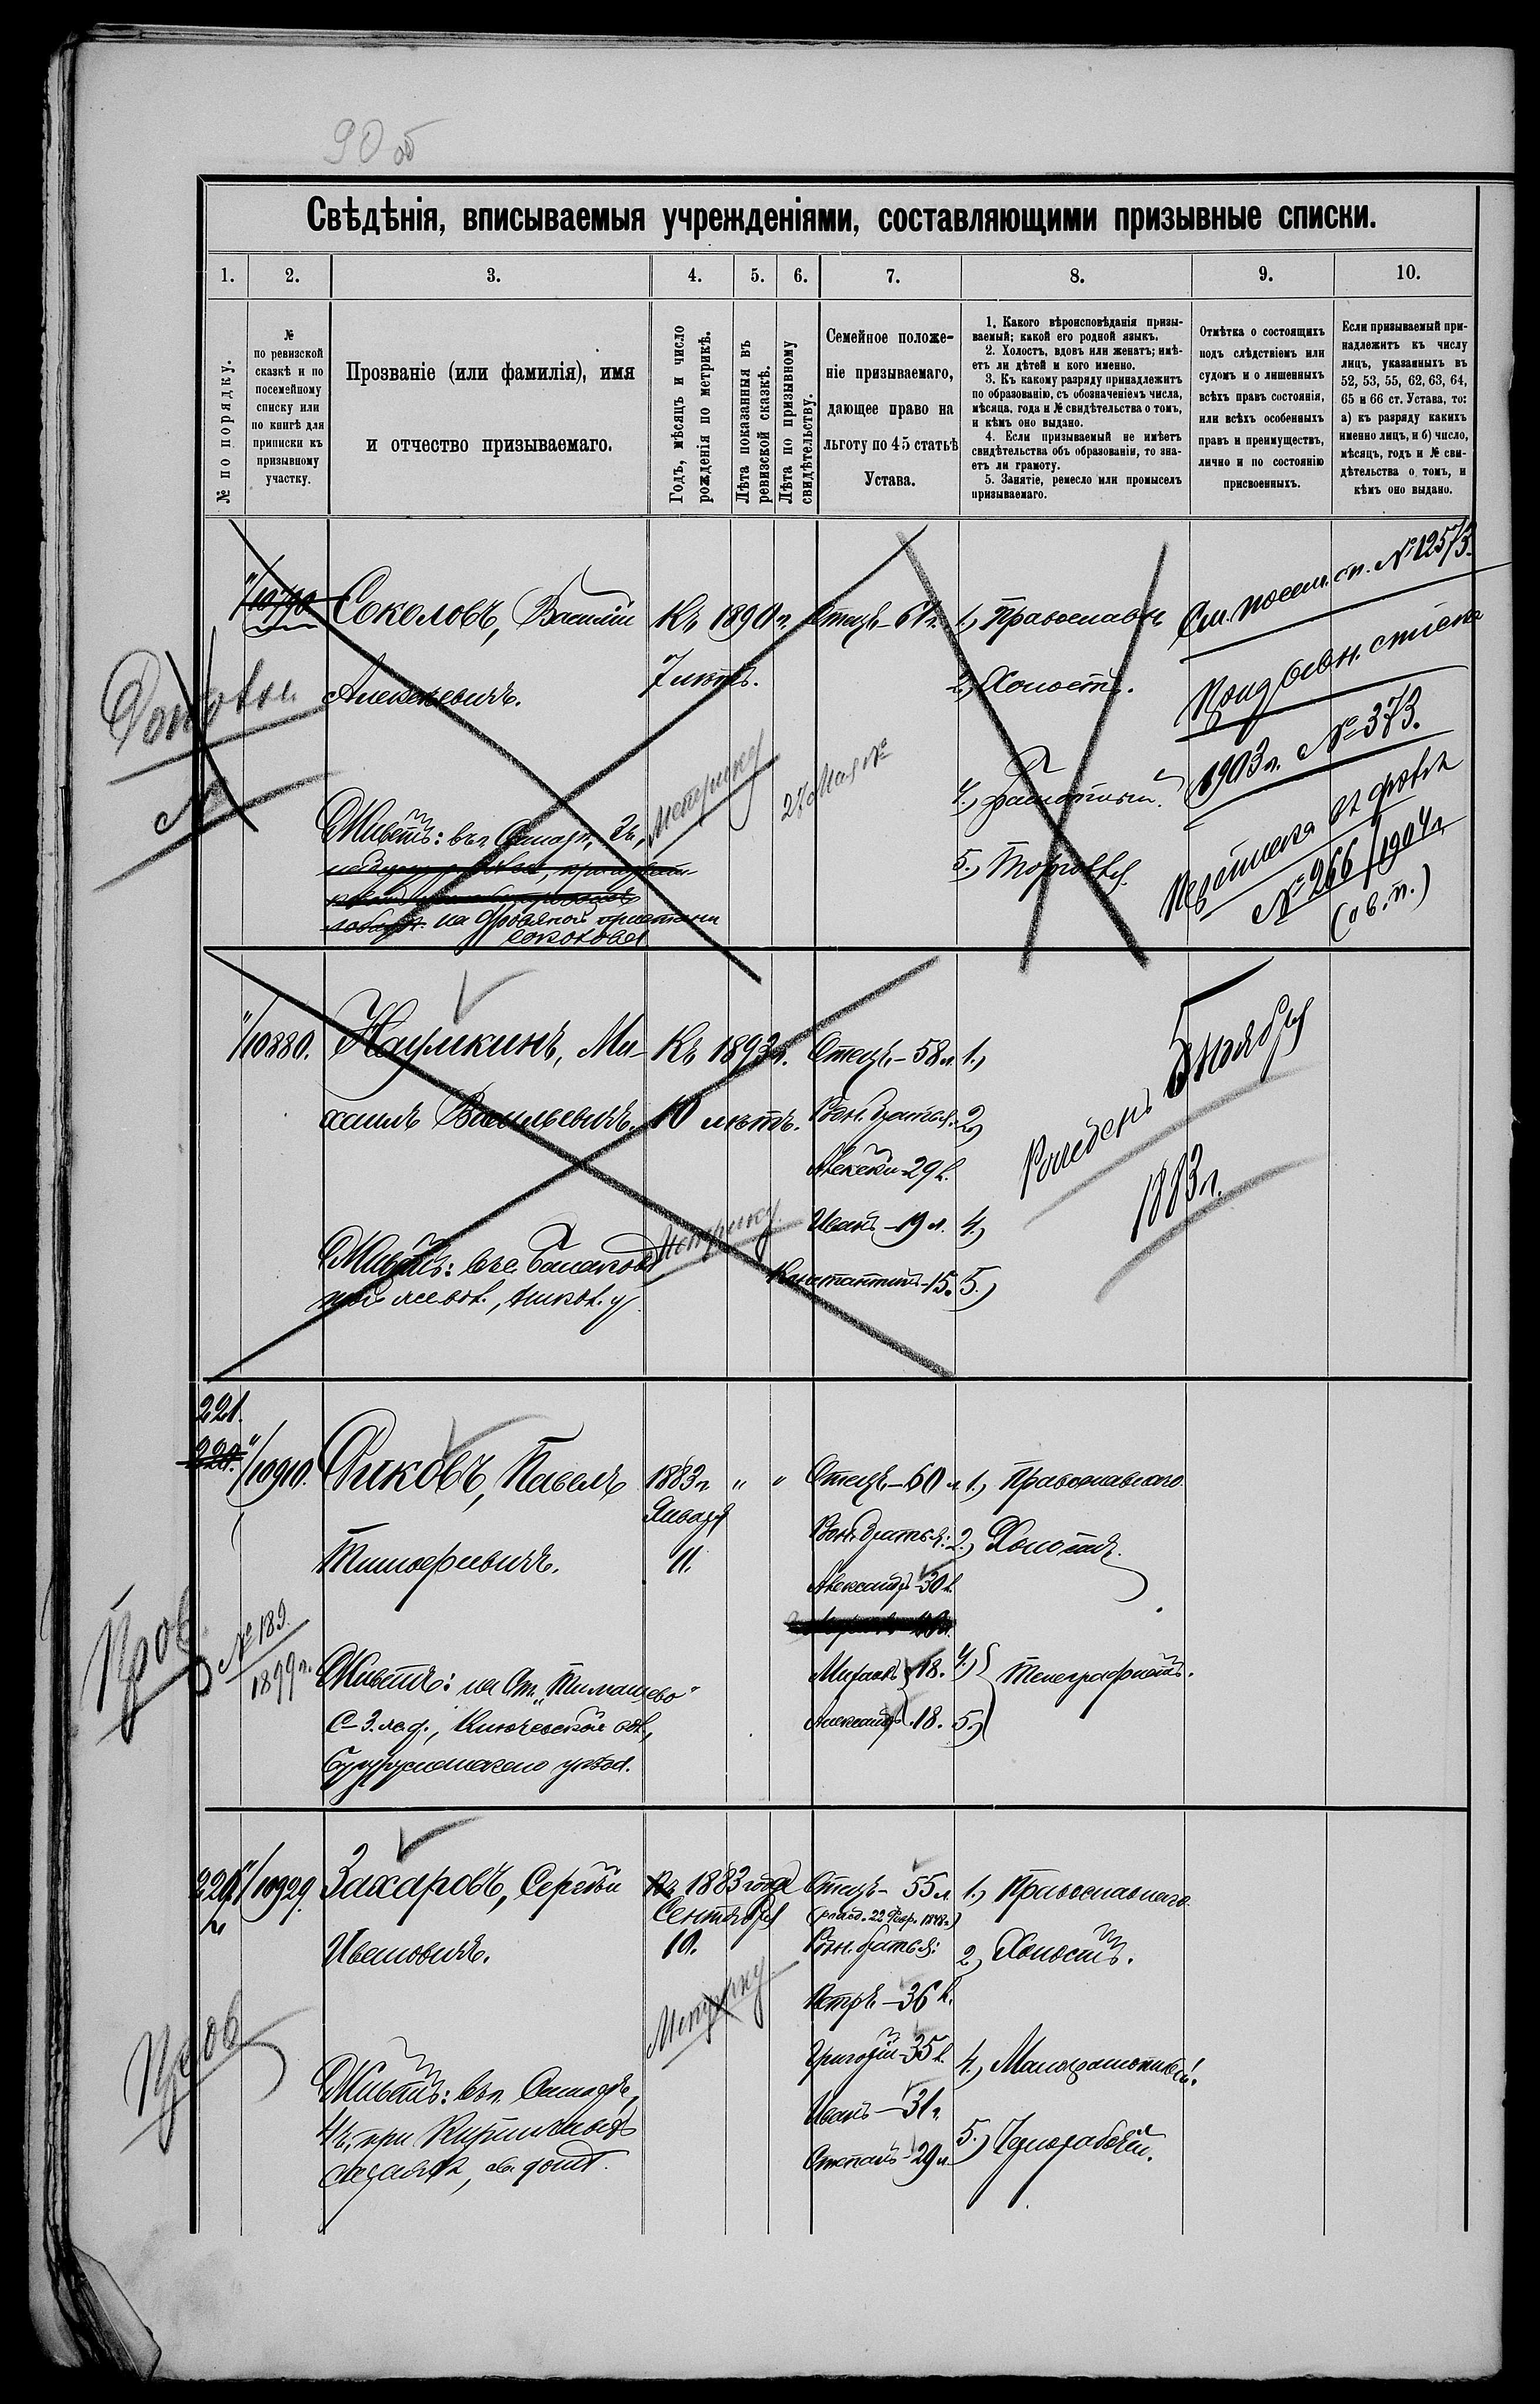 90 об
Свѣдѣнія, вписываемыя учрежденіями, составляющими призывные списки.
1. 2. 3. 4. 5. 6. 7. 8. 9. 10.
№ по порядку.
№
по ревизской
сказкѣ и по
посемейному
списку или
по книгѣ для
приписки къ
призывному
участку.
Прозваніе (или фамилія), имя
и отчество призываемаго.
Годъ, мѣсяцъ и число
рожденія по метрикѣ.
Лѣта показанныя въ
ревизской сказкѣ.
Лѣта по призывному
свидѣтельству.
Семейное положе-
ніе призываемаго,
дающее право на
льготу по 45 статьѣ
Устава.
1. Какого вѣроисповѣданія призы-
ваемый; какой его родной языкъ.
2. Холостъ, вдовъ или женатъ; имѣ-
етъ ли дѣтей и кого именно.
3. Къ какому разряду принадлежитъ
по образованію, съ обозначеніемъ числа,
мѣсяца, года и № свидѣтельства о томъ,
и кѣмъ оно выдано.
4. Если призываемый не имѣетъ
свидѣтельства объ образованіи, то зна-
етъ ли грамоту.
5. Занятіе, ремесло или промыселъ
призываемаго.
Отмѣтка о состоящихъ
подъ слѣдствіемъ или
судомъ и о лишенныхъ
всѣхъ правъ состоянія,
или всѣхъ особенныхъ
правъ и преимуществъ,
лично и по состоянію
присвоенныхъ.
Если призываемый при-
надлежитъ къ числу
лицъ, указанныхъ въ
52, 53, 55, 62, 63, 64,
65 и 66 ст. Устава, то:
а) къ разряду какихъ
именно лицъ, и б) число,
мѣсяцъ, годъ и № сви-
дѣтельства о томъ, и
кѣмъ оно выдано.
Соколовъ, Василій
Къ 1890 г.
7 лѣтъ.
Отецъ – 61 г.
1.) Православн
2.) Холостъ.
4.) Грамотный.
5.) Торговля.
Алексѣевичъ.
Метрику
27 Мая
Живетъ: въ г. Самарѣ, 2 ч.,
на Дровяной пристани
Соколова
См. посем. сп. № 12573.
1903 г. № 373.
№ 266/1904 г.
"/10880.
Наумкинъ, Ми-
хаилъ Васильевичъ.
Къ 1893 г.
10 лѣтъ.
Отецъ – 58 л.
Родн. братья:
Алексѣй – 29 л.
Иванъ – 19 л.
Константинъ – 15.
1.)
2.)
4.)
5.)
Метрику
Живетъ: въ с. Балаково
Рожденъ 5 ноября
1883 г.
221.
"/10910.
Диковъ, Павелъ
Тимофеевичъ.
1883 г.
Января
11.
" "
Отецъ – 60 л.
Родн. братья:
Александръ – 30 л.
Михаилъ 18.
Александръ 18.
1.) Православнаго.
2.) Холостъ.
4.)
5.)
Телеграфистъ.
Пров.
№ 189.
1899 г.
Живетъ: на Ст. „Тимашево"
С-З. ж. д., Ключевской вол.,
Бугурусланскаго уѣзда.
"/10929.
Захаровъ, Сергѣй
Ивановичъ.
Къ 1883 года
Сентября
10.
Метрику
Отецъ – 55 л.
(рожд. 22 Февр. 1848 г.)
Родн. братья:
Петръ – 36 л.
Григорій – 35 л.
Иванъ – 31 г.
Степанъ – 29 л.
1.) Православнаго
2.) Холостъ.
4.) Малограмотный.
5.) Чернорабочій.
Пров
Живетъ: въ г. Самарѣ,
4 ч., при Кирпичныхъ
сараяхъ, св. домъ.